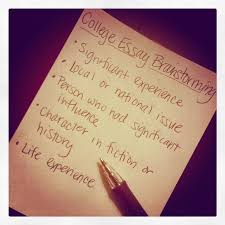 College Essay Brainstorming
• Significant experience
• local or national issue
• Person who had significant
influence
• Character in fiction or
history
• Life experience